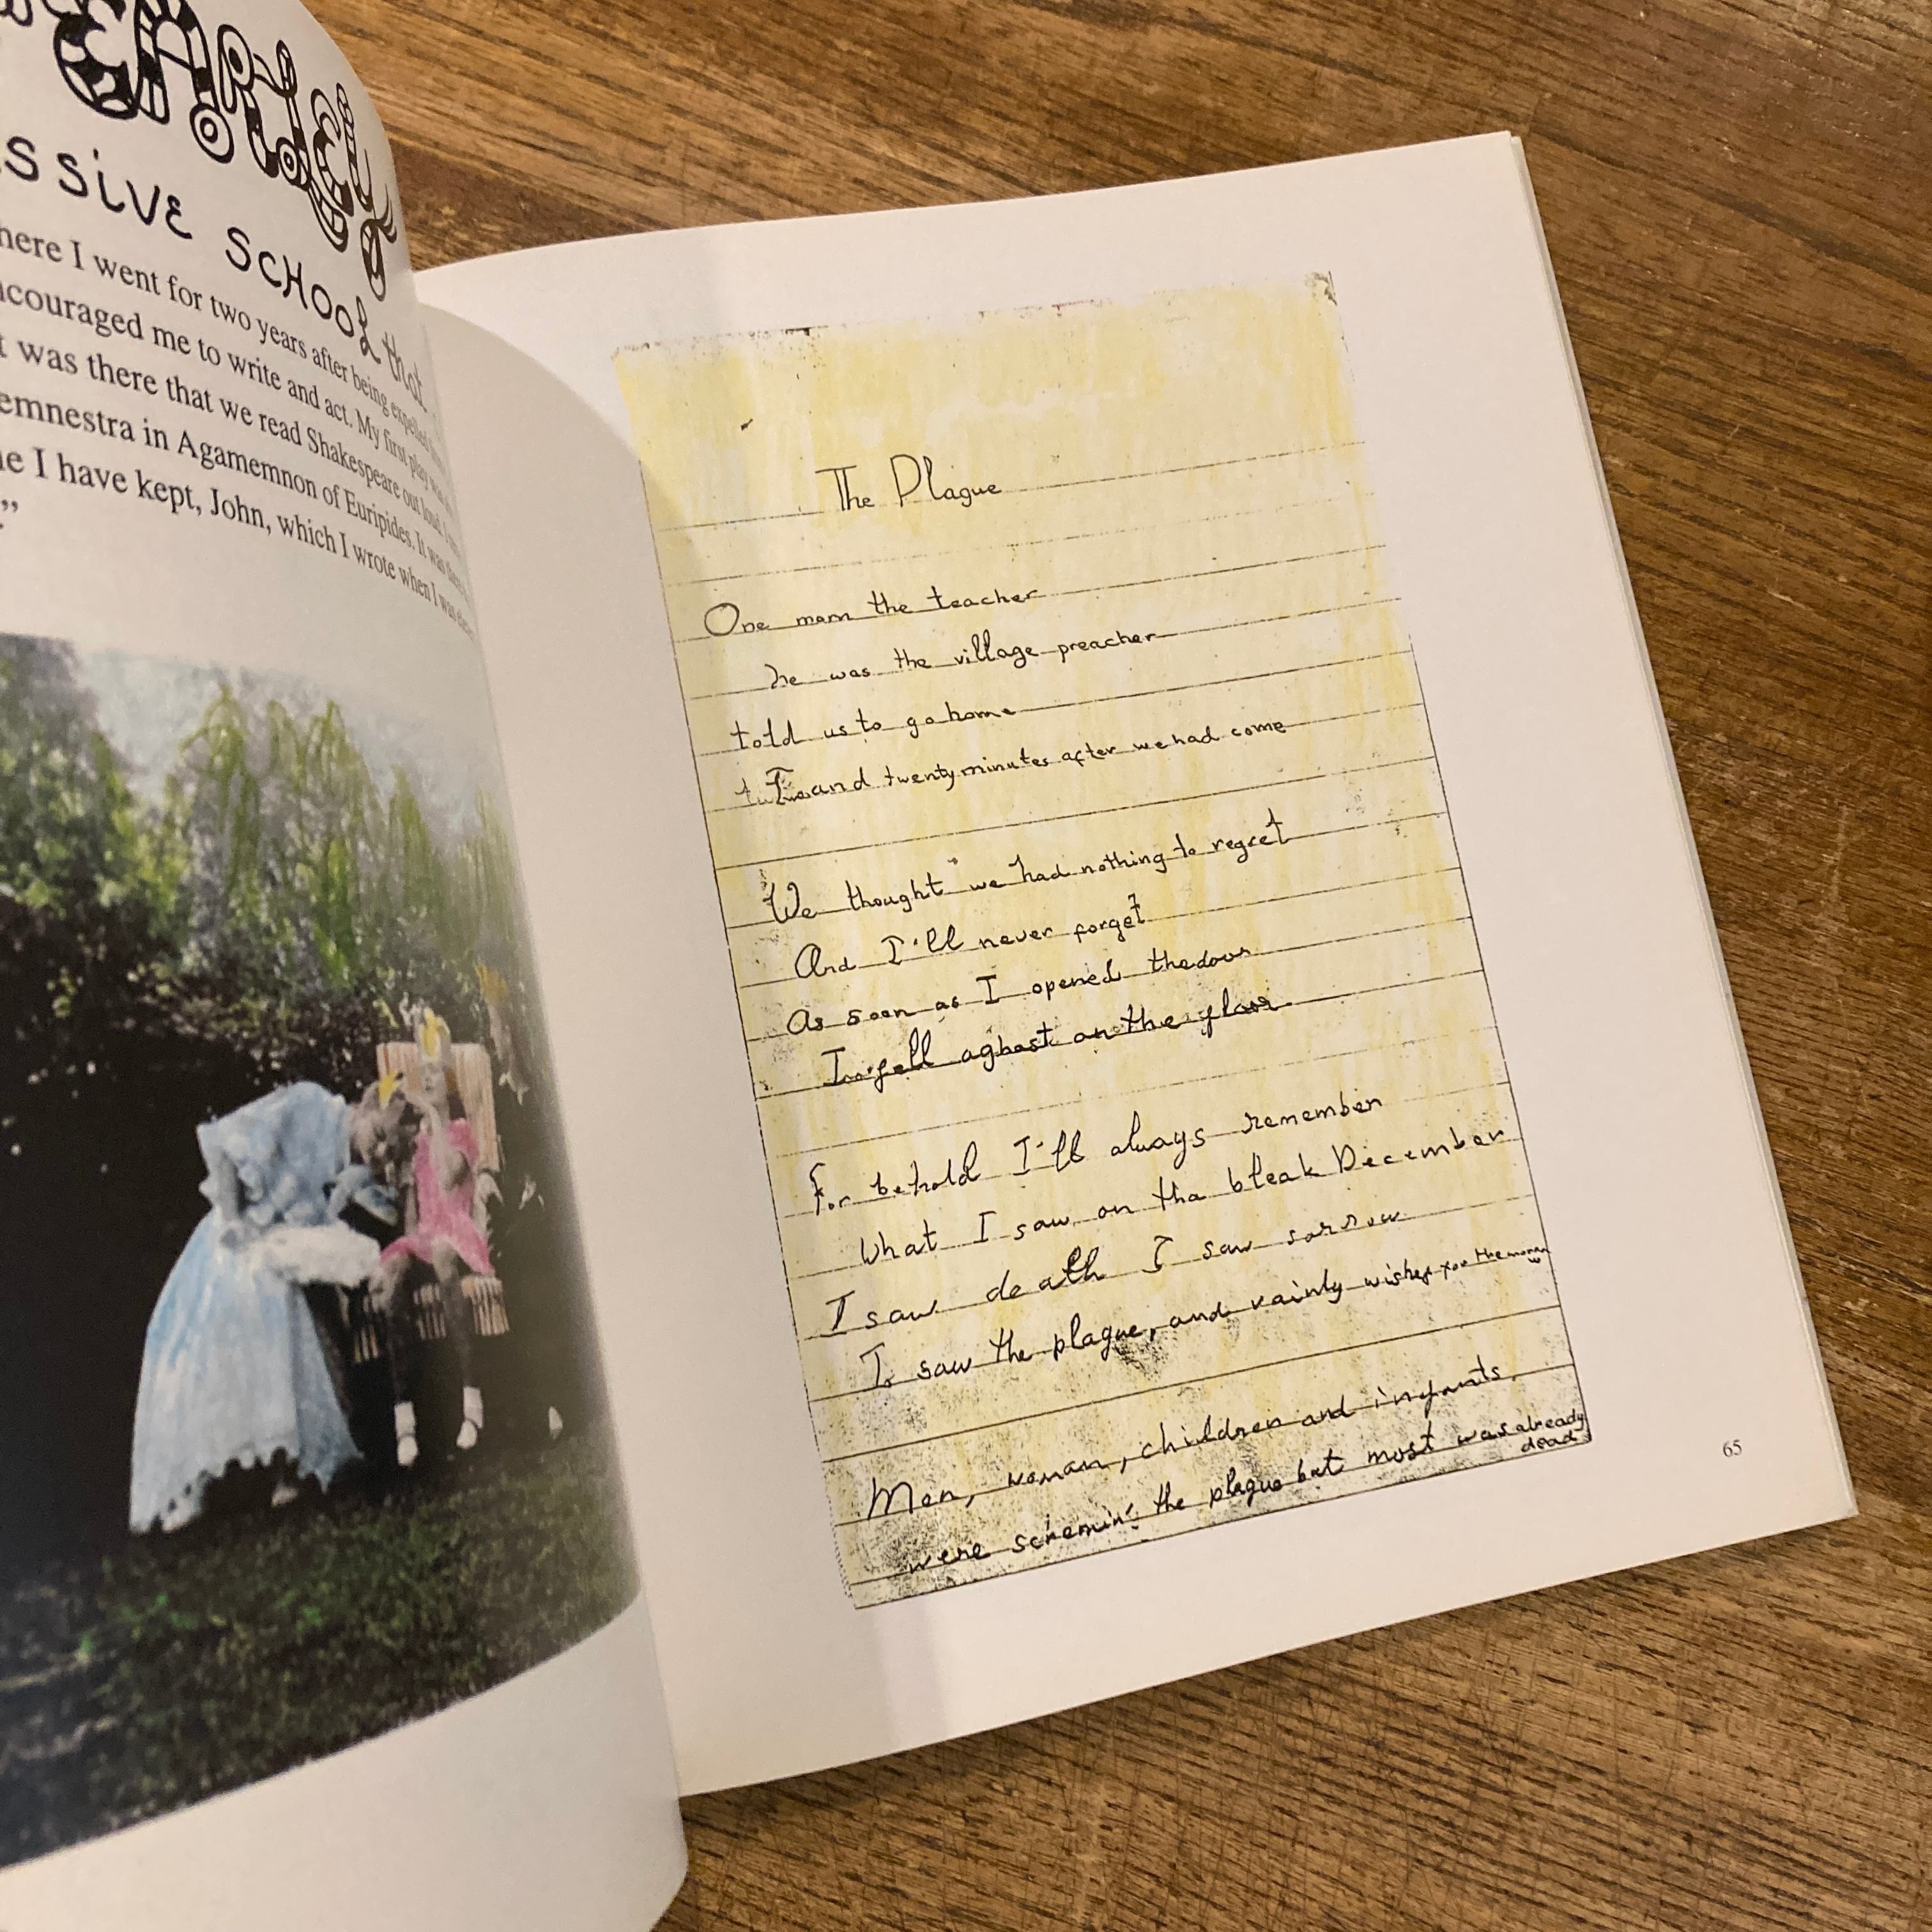 EARLEY
SSIVE SCHOOL that
here I went for two years after being expelled
ncouraged me to write and act. My first play was
t was there that we read Shakespeare out loud. I
emnestra in Agamemnon of Euripides. It was
ne I have kept, John, which I wrote when I was
."
The Plague
One morn the teacher
he was the village preacher
told us to go home
and twenty minutes after we had come
We thought we had nothing to regret
And I'll never forget
As soon as I opened the door
I fell aghast on the floor
For behold I'll always remember
What I saw on tha bleak December
I saw death I saw sorrow
I saw the plague, and vainly wishes for the morrow
Men, woman, children and infants,
were scremin' the plague but most was already
dead
65